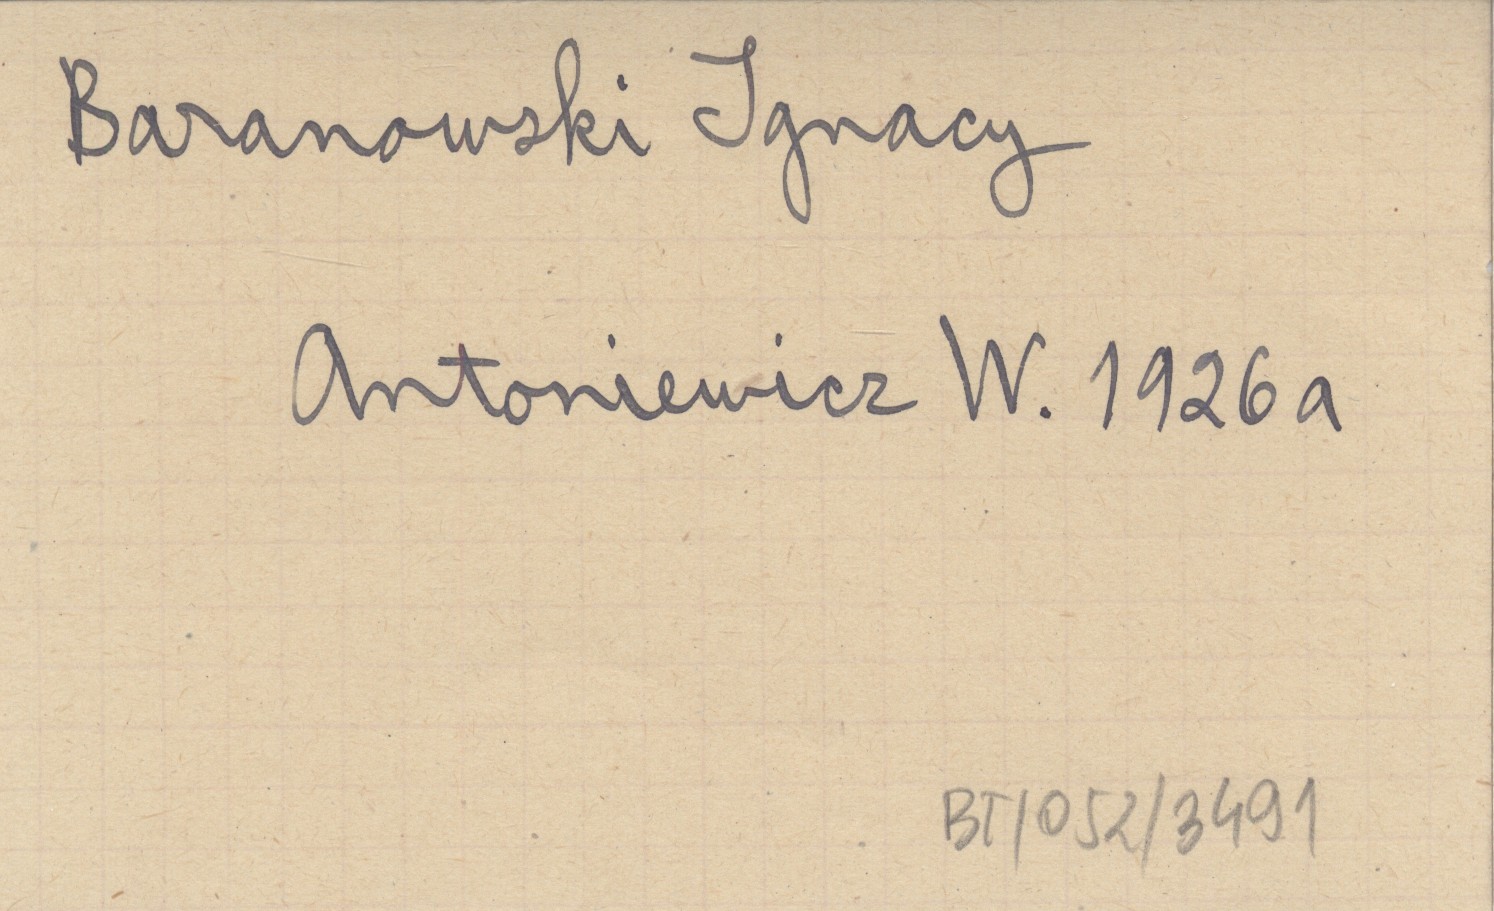 Baranowski Ignacy
Antoniewicz W. 1926a
BT/052/3491